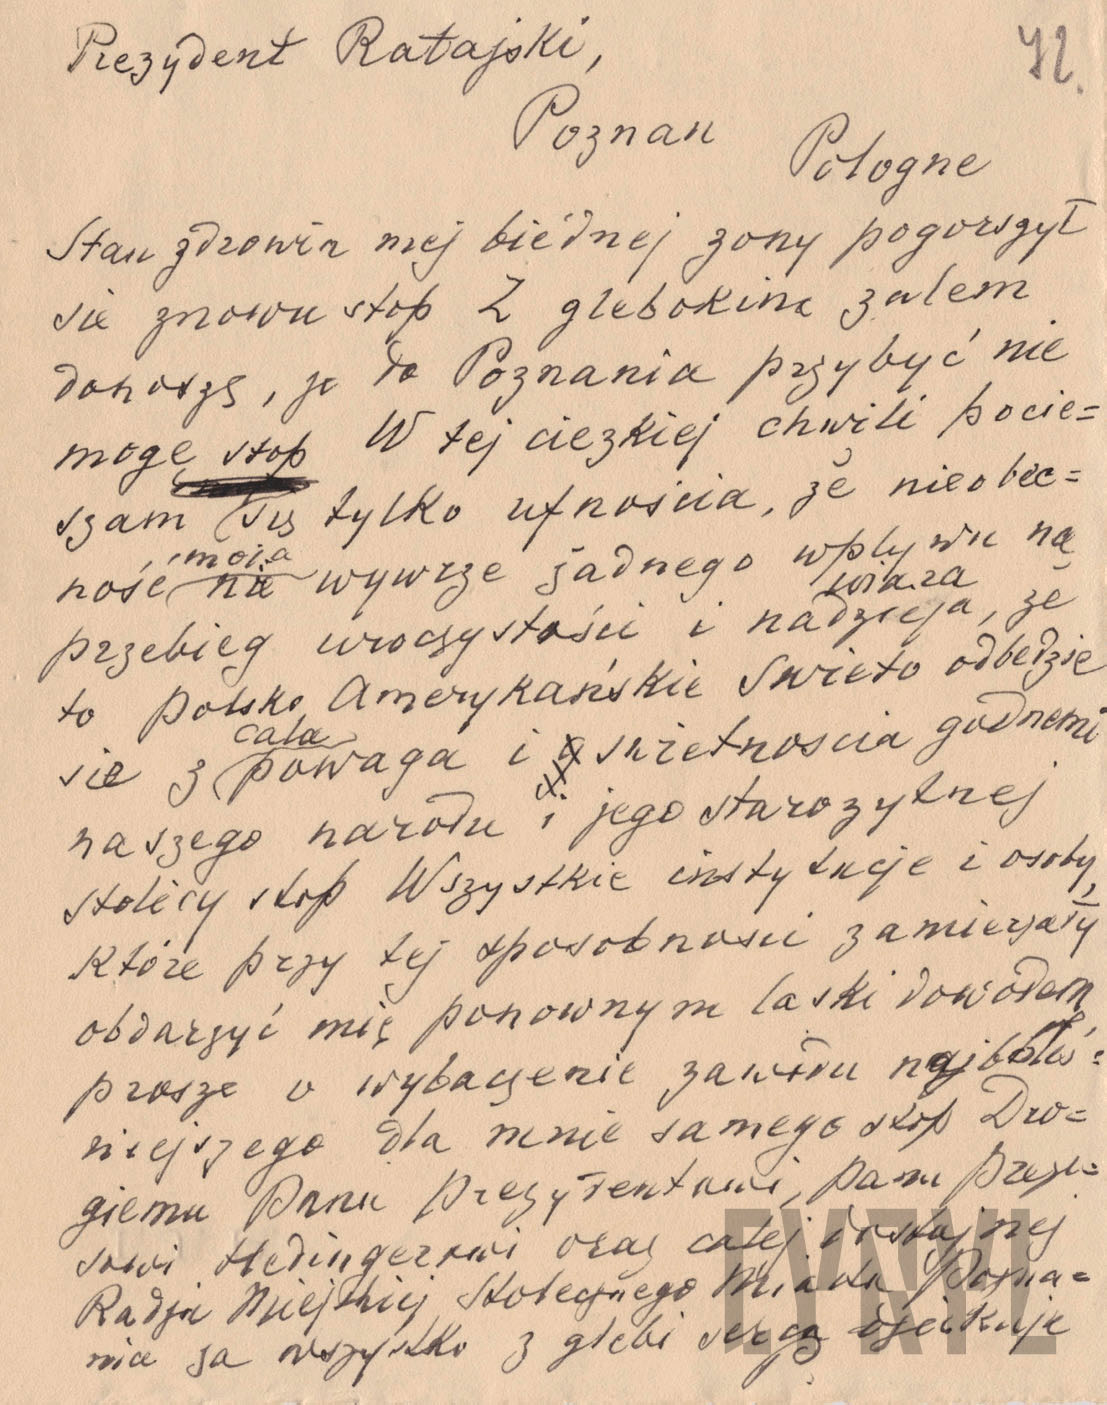 Prezydent Ratajski,
42.
Poznan
Pologne
Stan zdrowia mej biednej zony pogorszył
sie znowu stop Z glebokim zalem
donoszę, ze do Poznania przybyć nie
mogę stop W tej ciezkiej chwili pocie=
szam się tylko ufnościa, że nieobec=
ność moja nie wywrze żadnego wplywu na
przebieg uroczystości i wiara nadzieja, że
to Polsko Amerykańskie Swieto odbedzie
sie z cala powaga i swietnoscia godnemi
naszego narodu i jego starozytnej
stolicy stop Wszystkie instytucje i osoby,
które przy tej sposobnosci zamierzały
obdarzyć mię ponownym laski dowodem
prosze o wybaczenie zawodu najboleś=
niejszego dla mnie samego stop Dro=
giemu Panu Prezydentowi, panu preze=
sowi Hedingerowi oraz calej dostojnej
Radzie Miejskiej Stolecznego Miasta Pozna=
nia za wszystko z glebi serca dziekuje